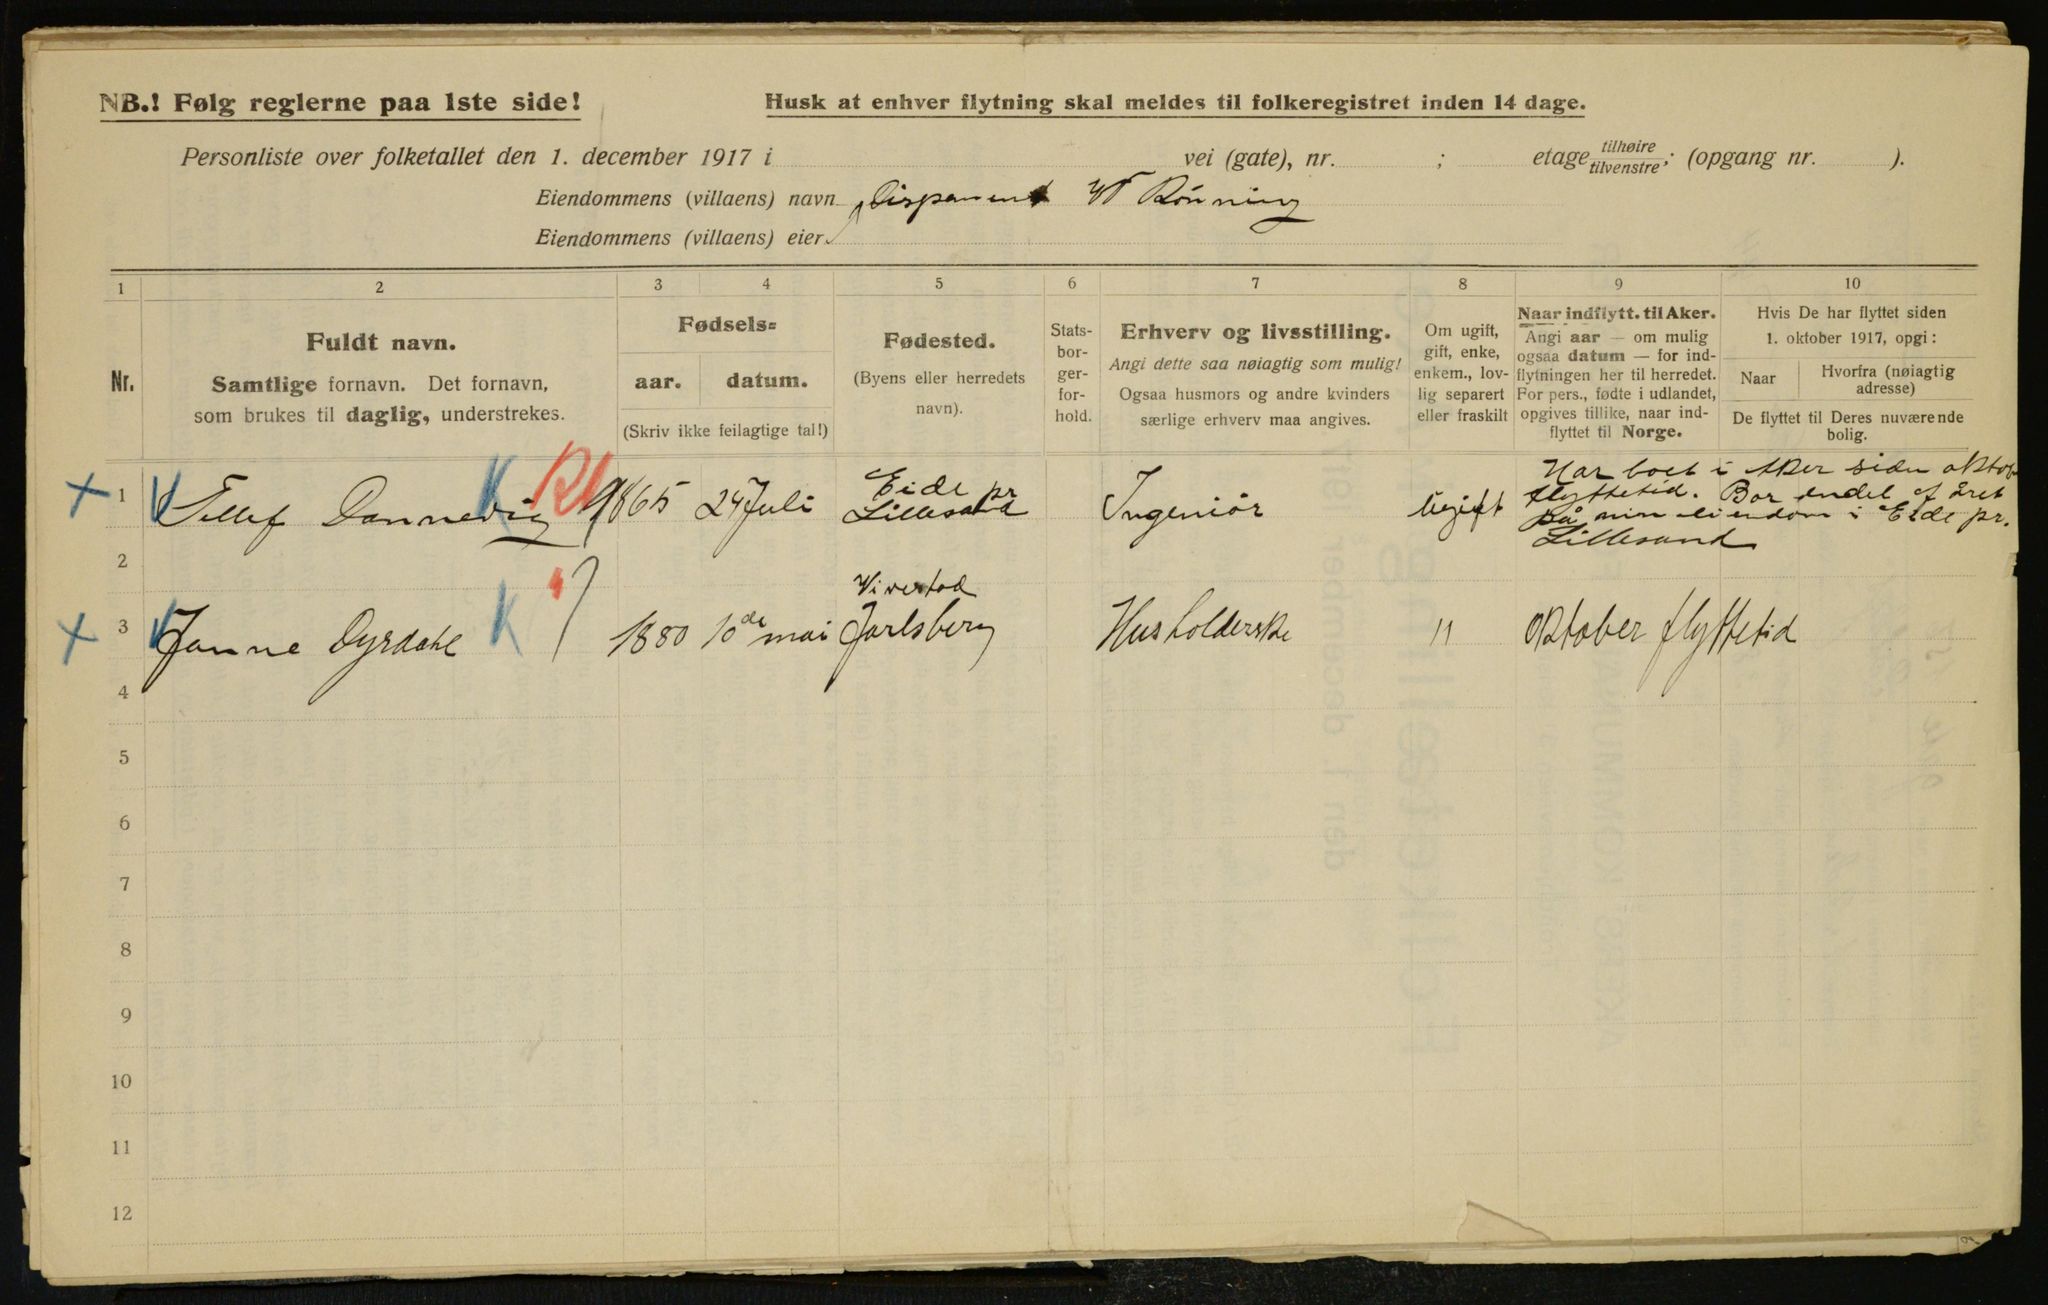 NB.! Følg reglerne paa 1ste side!
Husk at enhver flytning skal meldes til folkeregistret inden 14 dage.
Personliste over folketallet den 1. december 1917 i vei (gate), nr. ; etage tilhøire tilvenstre ; (opgang nr. ).
Eiendommens (villaens) navn Rönning
Eiendommens (villaens) eier
1 2 3 4 5 6 7 8 9 10
Nr.
Fuldt navn.
Samtlige fornavn. Det fornavn,
som brukes til daglig, understrekes.
Fødsels=
aar. datum.
(Skriv ikke feilagtige tal!)
Fødested.
(Byens eller herredets
navn).
Stats-
bor-
ger-
for-
hold.
Erhverv og livsstilling.
Angi dette saa nøiagtig som mulig!
Ogsaa husmors og andre kvinders
særlige erhverv maa angives.
Om ugift,
gift, enke,
enkem., lov-
lig separert
eller fraskilt
Naar indflytt. til Aker.
Angi aar — om mulig
ogsaa datum — for ind-
flytningen her til herredet.
For pers., fødte i utlandet,
opgives tillike, naar ind-
flyttet til Norge.
Hvis De har flyttet siden
1. oktober 1917, opgi:
Naar
Hvorfra (nøiagtig
adresse)
De flyttet til Deres nuværende
bolig.
1 Tellef Dannevig K 1865 24 Juli Eide pr Lillesand Ingeniör Ugift
Har boet i Aker siden oktob
flyttetid. Bor endel af året
på min eiendom i Eide pr.
Lillesand
2
3 Janne Dyrdahl K " 1880 10de mai Vivestad Jarlsberg Husholderske " oktober flyttetid
4
5
6
7
8
9
10
11
12